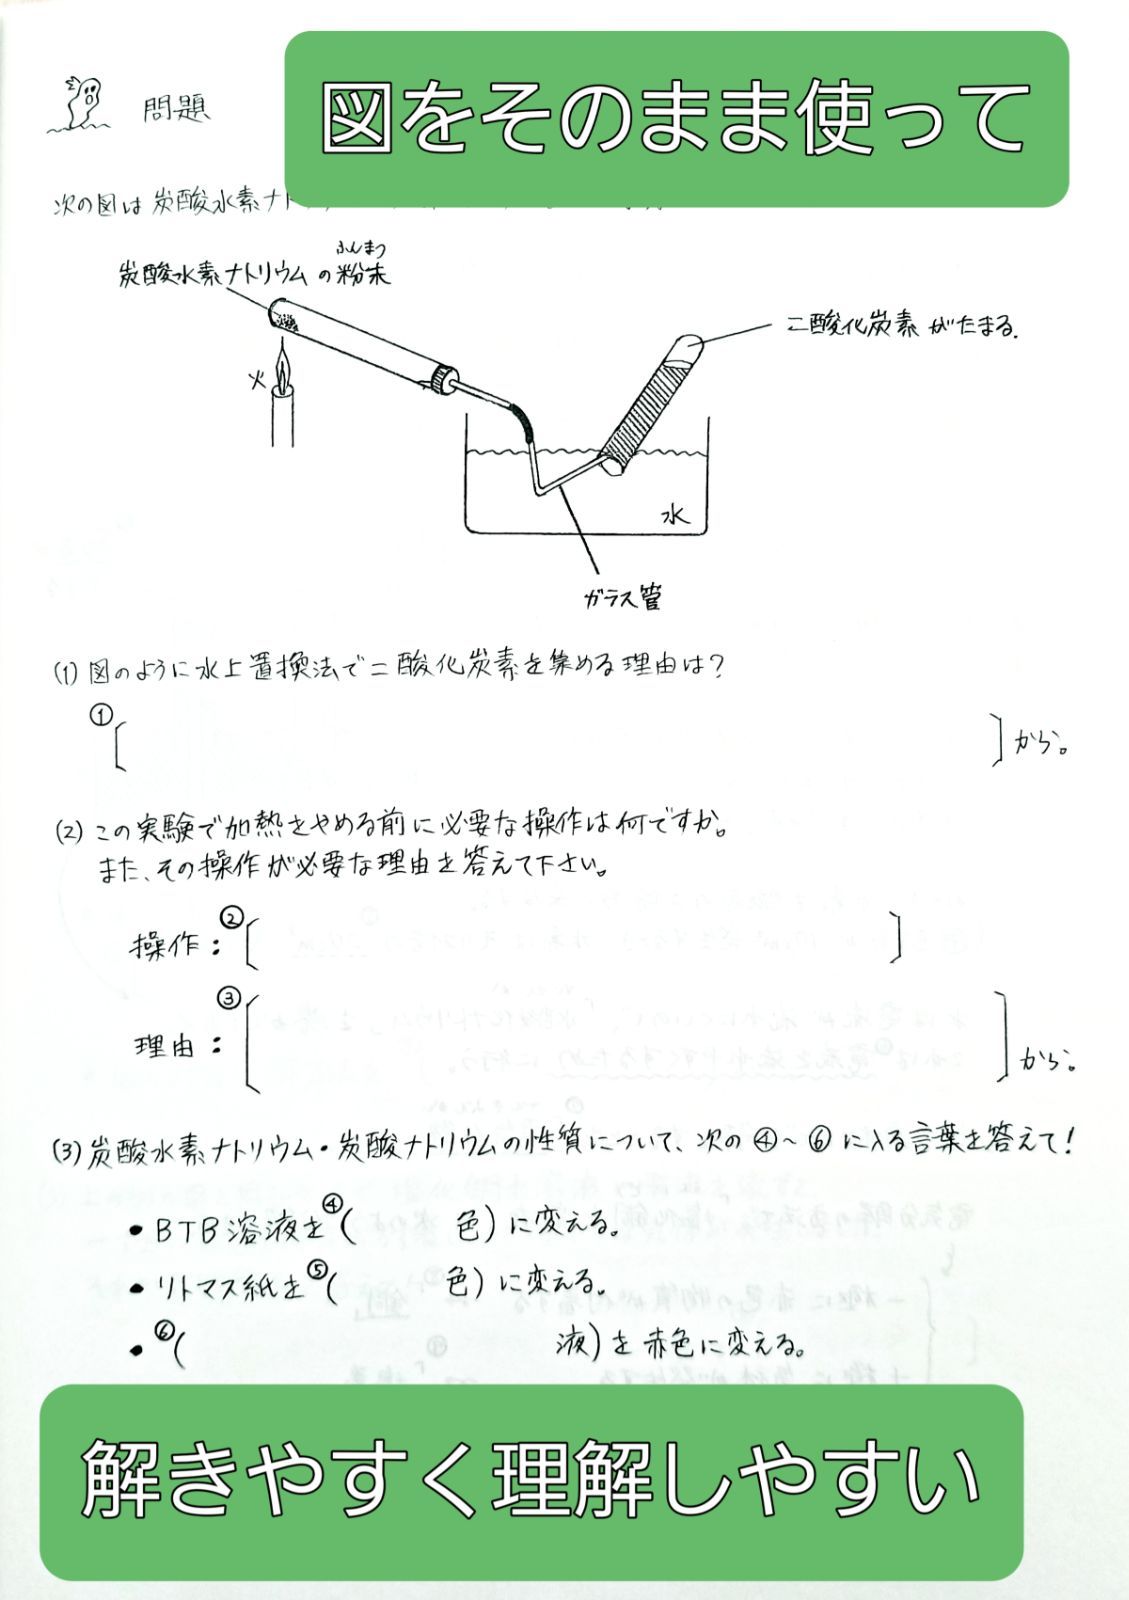 図をそのまま使って
問題
次の図は炭酸水素ナト
炭酸水素ナトリウムの粉末
ふんまつ
二酸化炭素がたまる.
火
水
ガラス管
(1) 図のように水上置換法で二酸化炭素を集める理由は？
①[ ]から。
(2) この実験で加熱をやめる前に必要な操作は何ですか。
また、その操作が必要な理由を答えて下さい。
操作：②[ ]
理由：③[ ]から。
(3) 炭酸水素ナトリウム・炭酸ナトリウムの性質について、次の④〜⑥に入る言葉を答えて！
• BTB溶液を④( 色)に変える。
• リトマス紙を⑤( 色)に変える。
• ⑥( 液)を赤色に変える。
解きやすく理解しやすい